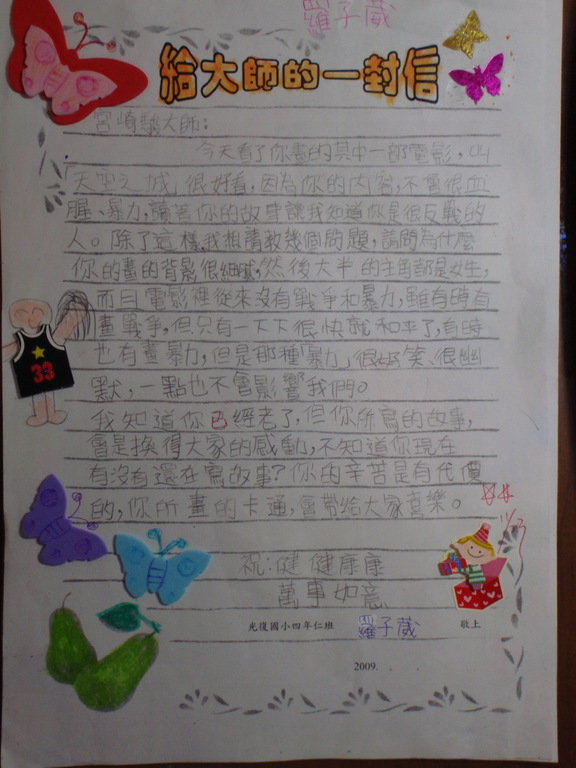 羅子葳
給大師的一封信
宮崎駿大師:
今天看了你畫的其中一部電影,叫
「天空之城」很好看,因為你的內容,不會很血
腥、暴力,讀著你的故事讓我知道你是很反戰的
人。除了這樣,我想請教幾個問題,請問為什麼
你的畫的背景很細膩,然後大半的主角都是女生,
而且電影裡從來沒有戰爭和暴力,雖有時有
畫戰爭,但只有一下下很快就和來了,有時
也有畫暴力,但是那種「暴力」很好笑、很幽
默,一點也不會影響我們。
我知道你已經老了,但你所寫的故事,
會是換得大家的感動,不知道你現在
有沒有還在寫故事?你的辛苦是有代價
的,你所畫的卡通,會帶給大家喜樂。
祝:健健康康
萬事如意
光復國小四年仁班 羅子葳 敬上
2009.
33